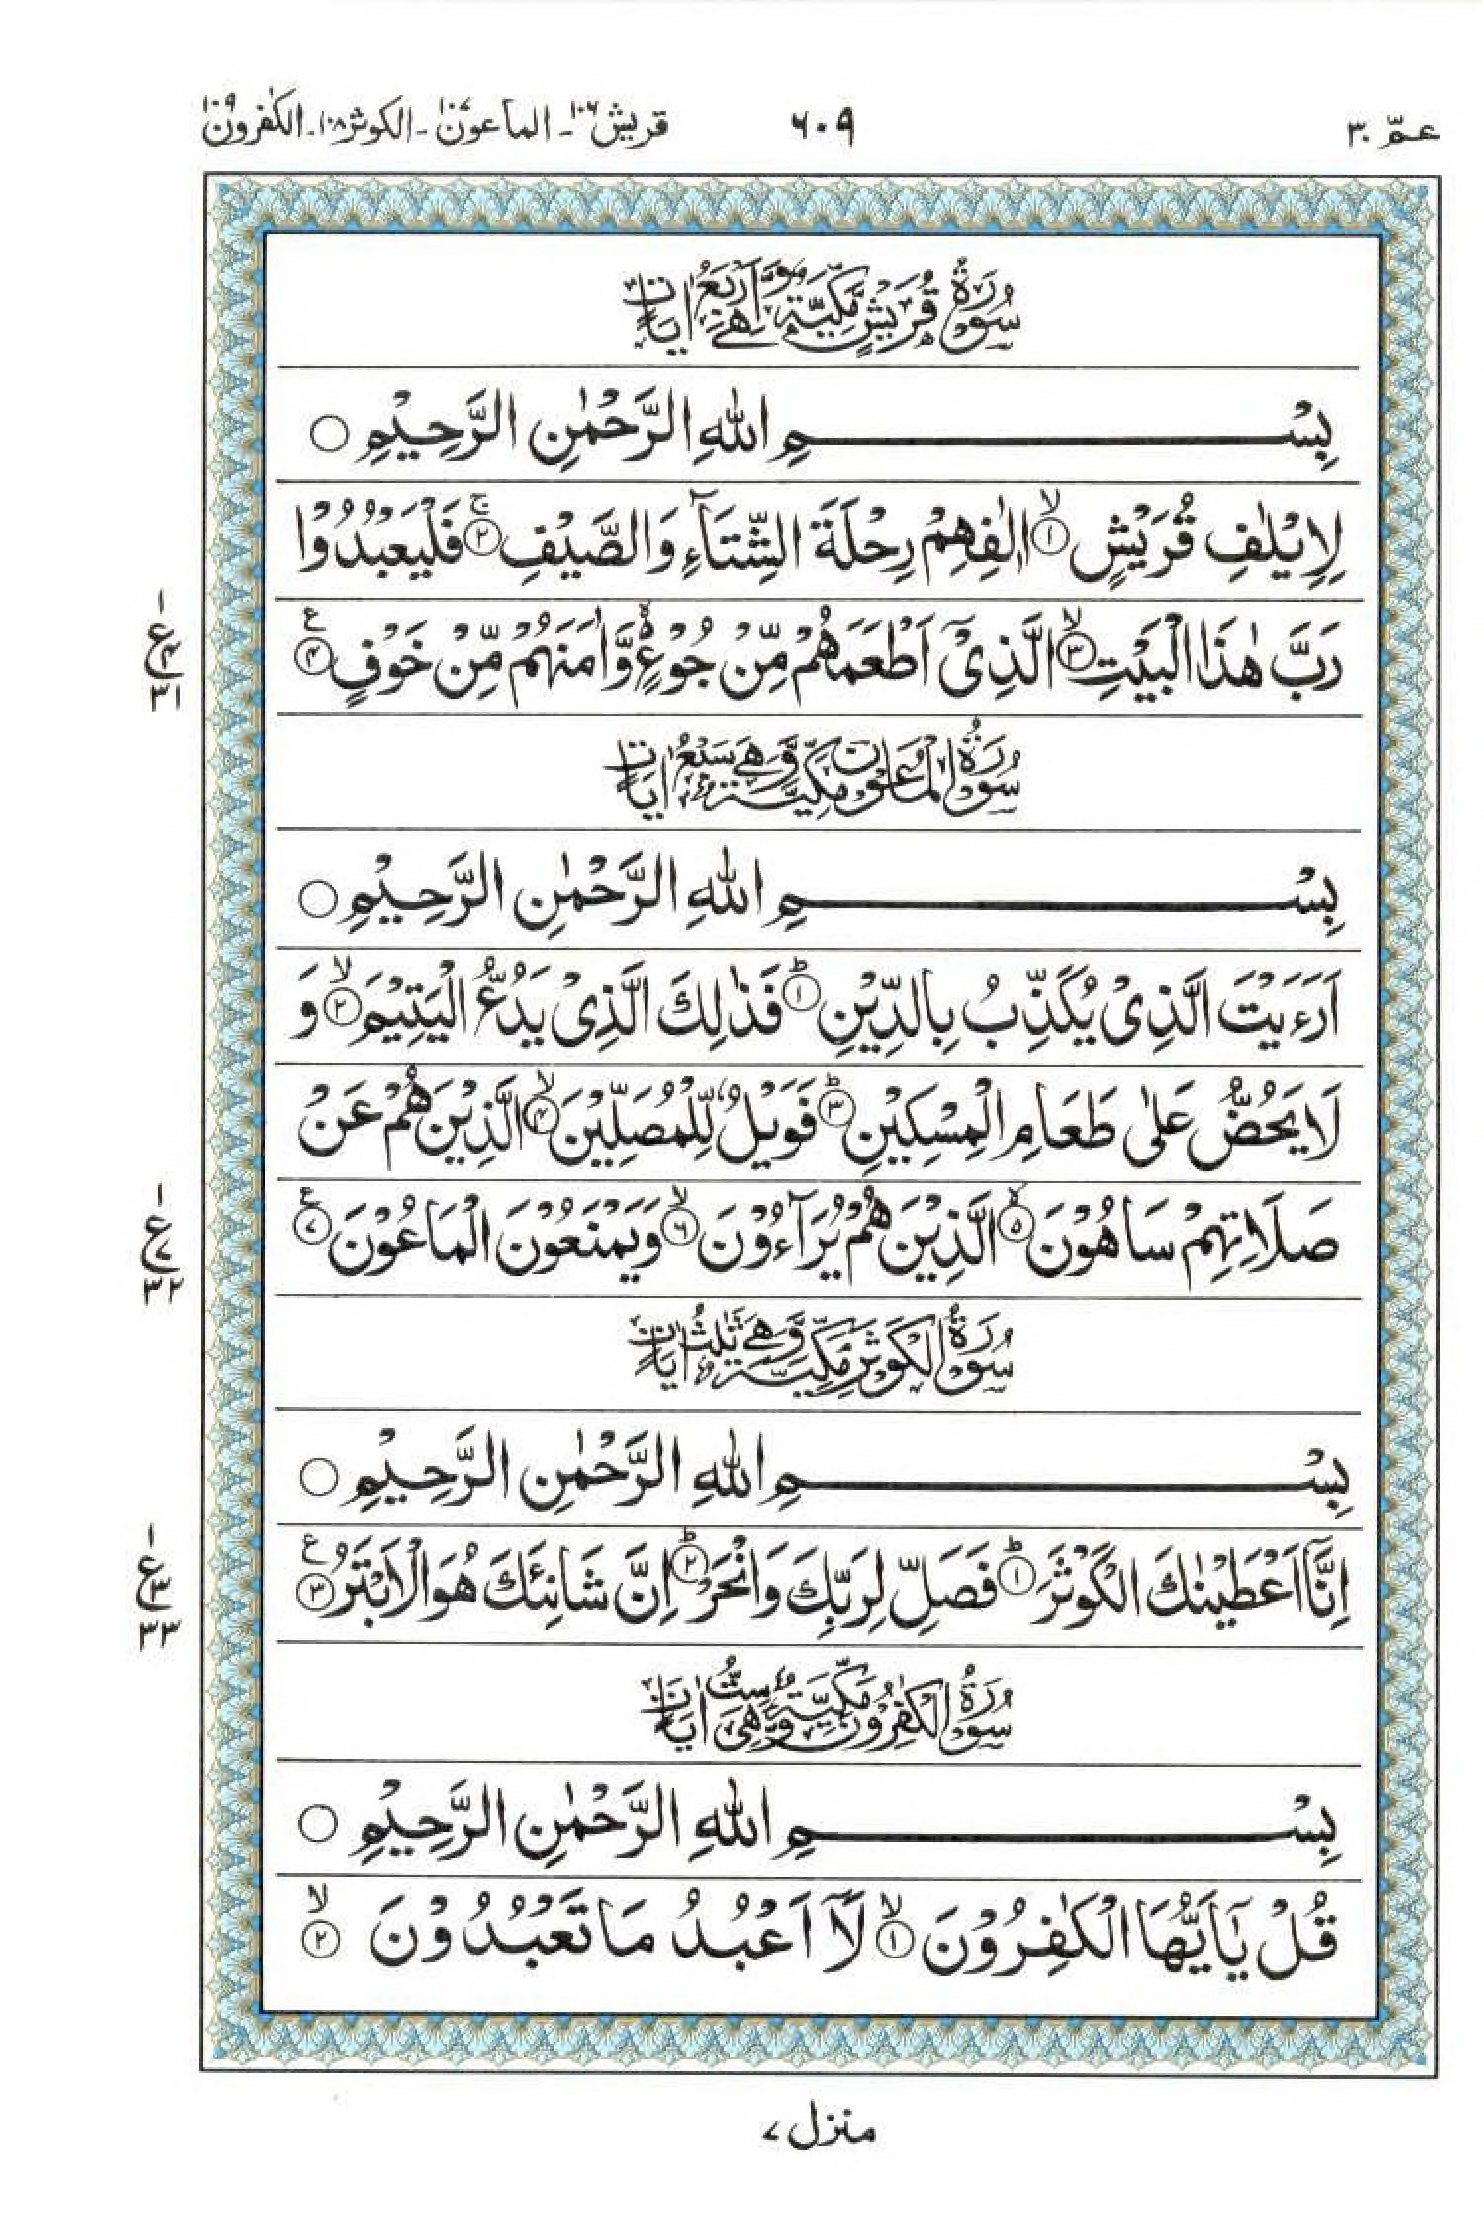 عـمّ ٣٠ ٦٠٩ قريش ١٠٦ - الماعون ١٠٧ - الكوثر ١٠٨ - الكٰفرون ١٠٩
سُوْرَةُ قُرَيْشٍ مَّكِّيَّةٌ وَّهِيَ اَرْبَعُ اٰيَاتٍ
بِسْمِ اللهِ الرَّحْمٰنِ الرَّحِيْمِ ○
لِاِيْلٰفِ قُرَيْشٍ ۙ﴿١﴾ اٖلٰفِهِمْ رِحْلَةَ الشِّتَآءِ وَالصَّيْفِ ۚ﴿٢﴾ فَلْيَعْبُدُوْا
رَبَّ هٰذَا الْبَيْتِ ۙ﴿٣﴾ الَّذِيْٓ اَطْعَمَهُمْ مِّنْ جُوْعٍ ۙ۬ وَّاٰمَنَهُمْ مِّنْ خَوْفٍ ﴿٤﴾ ع
١ ع ٤ ٣١
سُوْرَةُ الْمَاعُوْنِ مَكِّيَّةٌ وَّهِيَ سَبْعُ اٰيَاتٍ
بِسْمِ اللهِ الرَّحْمٰنِ الرَّحِيْمِ ○
اَرَءَيْتَ الَّذِيْ يُكَذِّبُ بِالدِّيْنِ ؕ﴿١﴾ فَذٰلِكَ الَّذِيْ يَدُعُّ الْيَتِيْمَ ۙ﴿٢﴾ وَ
لَا يَحُضُّ عَلٰى طَعَامِ الْمِسْكِيْنِ ؕ﴿٣﴾ فَوَيْلٌ لِّلْمُصَلِّيْنَ ۙ﴿٤﴾ الَّذِيْنَ هُمْ عَنْ
صَلَاتِهِمْ سَاهُوْنَ ۙ﴿٥﴾ الَّذِيْنَ هُمْ يُرَآءُوْنَ ۙ﴿٦﴾ وَيَمْنَعُوْنَ الْمَاعُوْنَ ﴿٧﴾ ع
١ ع ٧ ٣٢
سُوْرَةُ الْكَوْثَرِ مَكِّيَّةٌ وَّهِيَ ثَلٰثُ اٰيَاتٍ
بِسْمِ اللهِ الرَّحْمٰنِ الرَّحِيْمِ ○
اِنَّآ اَعْطَيْنٰكَ الْكَوْثَرَ ؕ﴿١﴾ فَصَلِّ لِرَبِّكَ وَانْحَرْ ؕ﴿٢﴾ اِنَّ شَانِئَكَ هُوَ الْاَبْتَرُ ﴿٣﴾ ع
١ ع ٣ ٣٣
سُوْرَةُ الْكٰفِرُوْنَ مَكِّيَّةٌ وَّهِيَ سِتُّ اٰيَاتٍ
بِسْمِ اللهِ الرَّحْمٰنِ الرَّحِيْمِ ○
قُلْ يٰٓاَيُّهَا الْكٰفِرُوْنَ ۙ﴿١﴾ لَآ اَعْبُدُ مَا تَعْبُدُوْنَ ۙ﴿٢﴾
منزل ٧